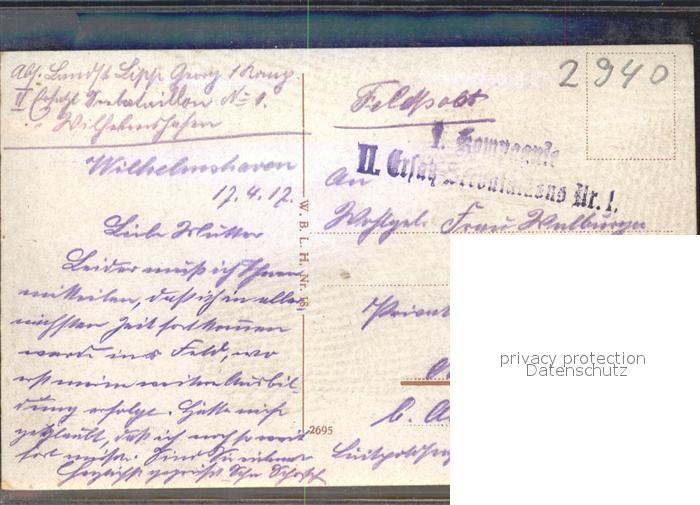 Abs. Landst. Lipp Georg 1 Komp.
II Ersatz Seebataillon No 1.
Wilhelmshafen
Wilhelmshaven
17.4.17.
Liebe Mutter
Leider muß ich Ihnen
mitteilen, daß ich in aller
nächsten Zeit fortkommen
werde ins Feld, wo
erst meine weitere Ausbil-
dung erfolge. Hätte nicht
geglaubt, daß ich noch so weit
fort müsse. Sind Sie
Herzlichst gegrüßt Ihr
W. B. L. H. Nr. 18
2695
2940
Feldpost
1. Kompagnie
II. Ersatz-Seebataillons Nr. 1.
An
Wohlgeb. Frau Walburga
Privat
b. A
Luitpold
privacy protection
Datenschutz